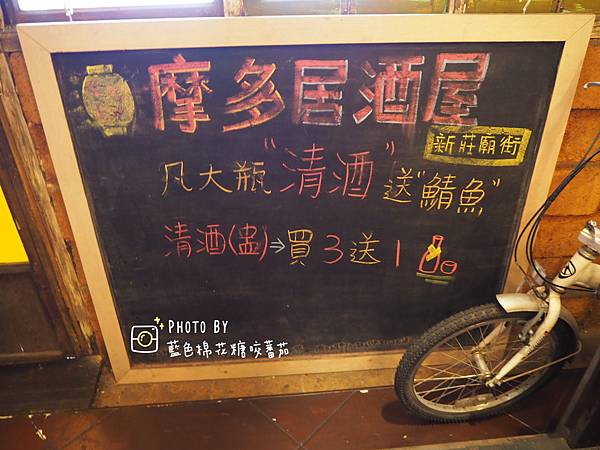 摩多居酒屋
新莊廟街
凡大瓶"清酒"送"鯖魚"
清酒(盅)⇒買3送1
PHOTO BY
藍色棉花糖咬蕃茄